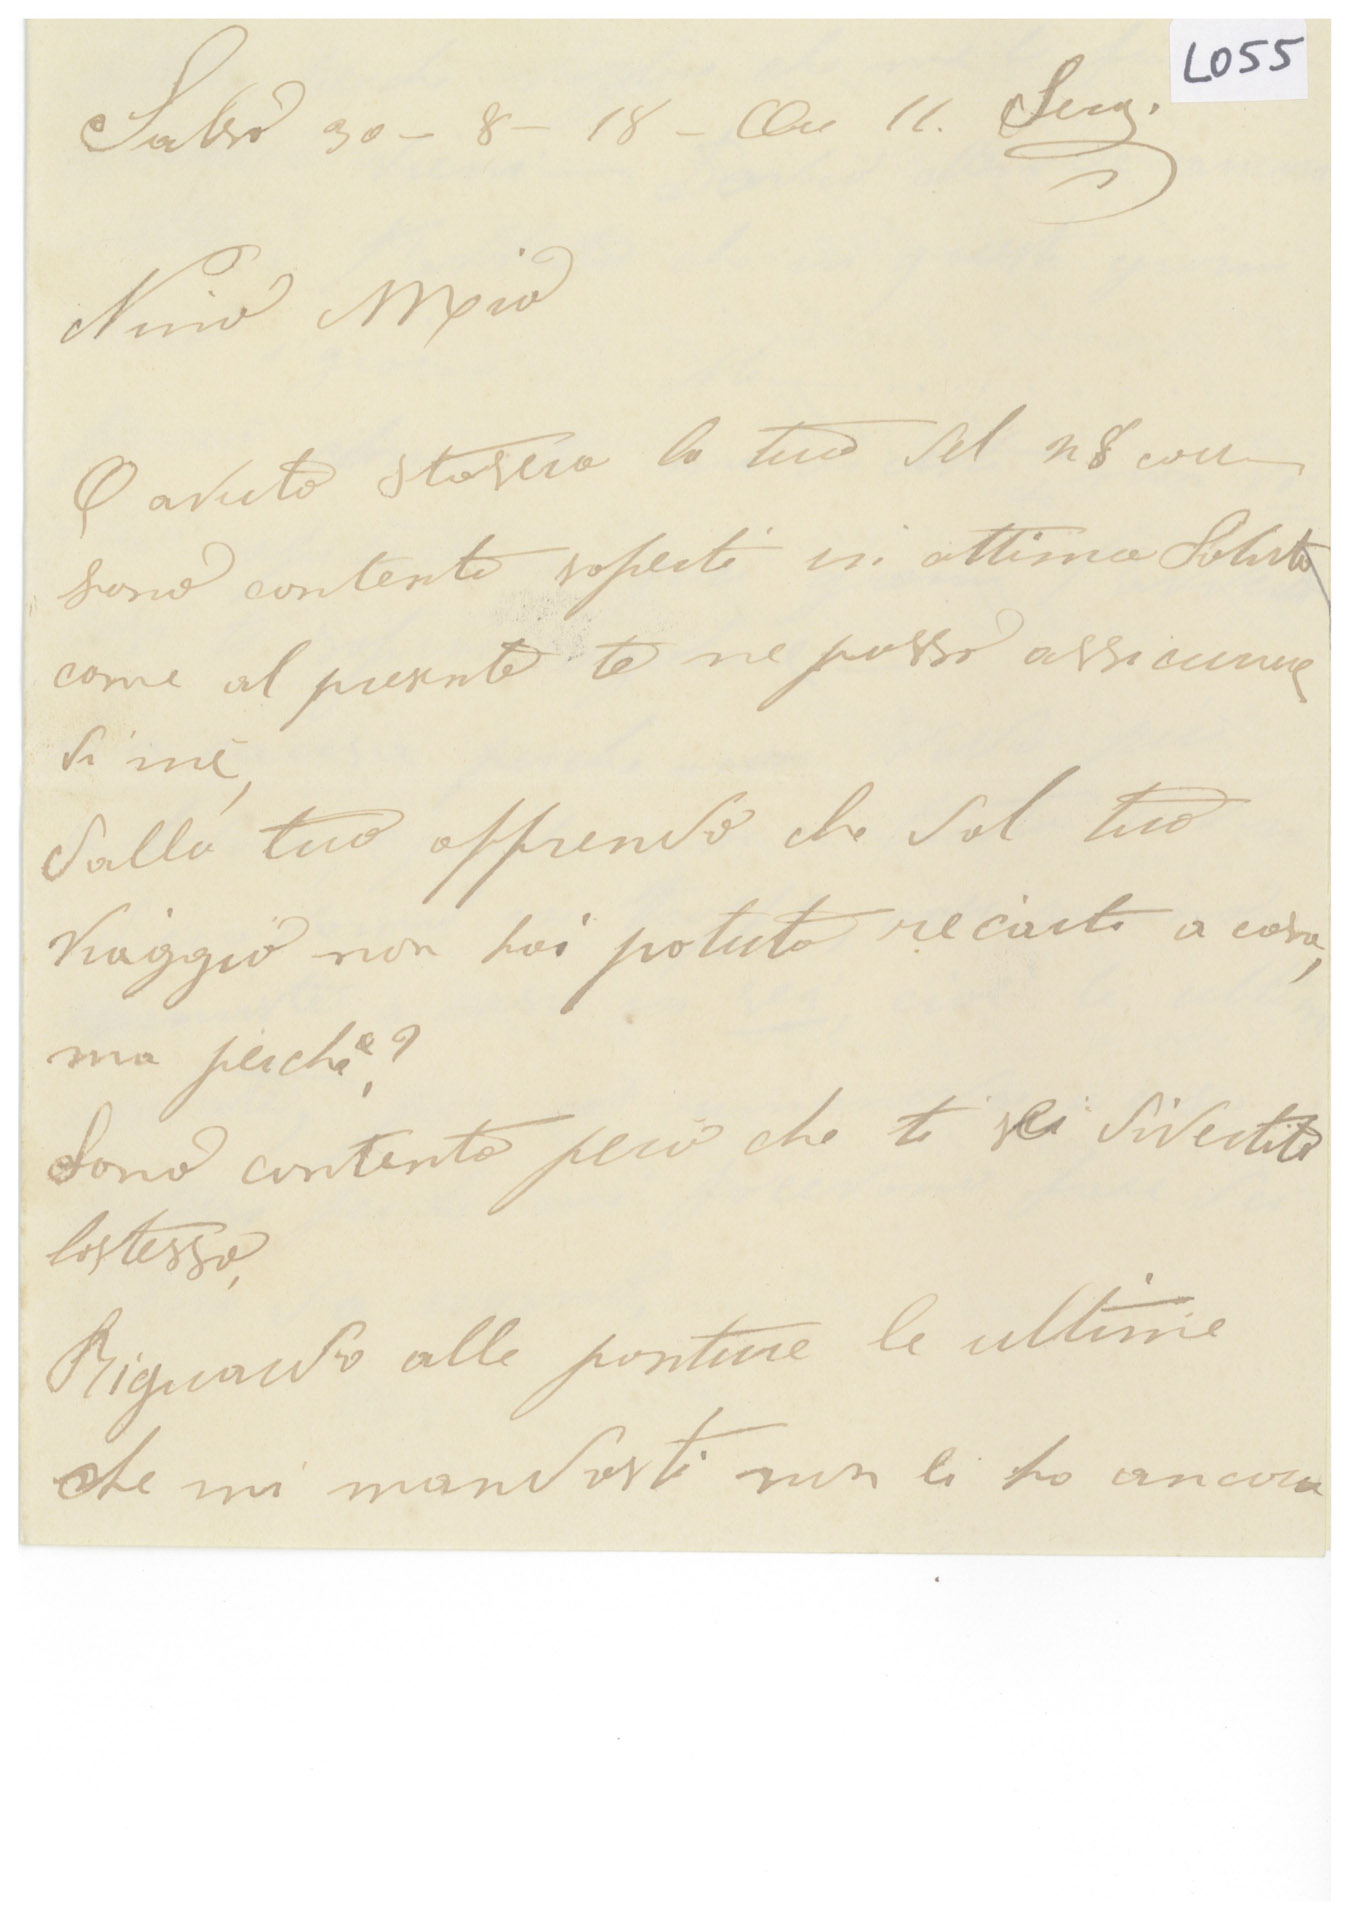 L055
Salò 30 - 8 - 18 - Ore 11. Sera.
Nino Mio
O avuto stasera la tua del 28 corr
sono contento saperti in ottima Saluto
come al presente te ne posso assicurare
di me,
dalla tua apprendo che dal tuo
viaggio non hai potuto recarti a casa,
ma perche?
Sono contento però che ti sei divertito
lostesso,
Riguardo alle ponture le ultime
che mi mandasti non li ho ancora